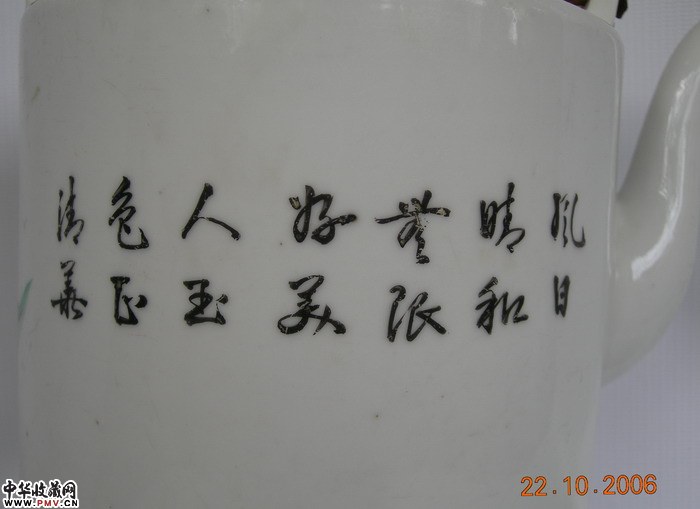 風日
晴和
無限
好美
人玉
色正
清華
22.10.2006
中华收藏网
WWW.PMV.CN